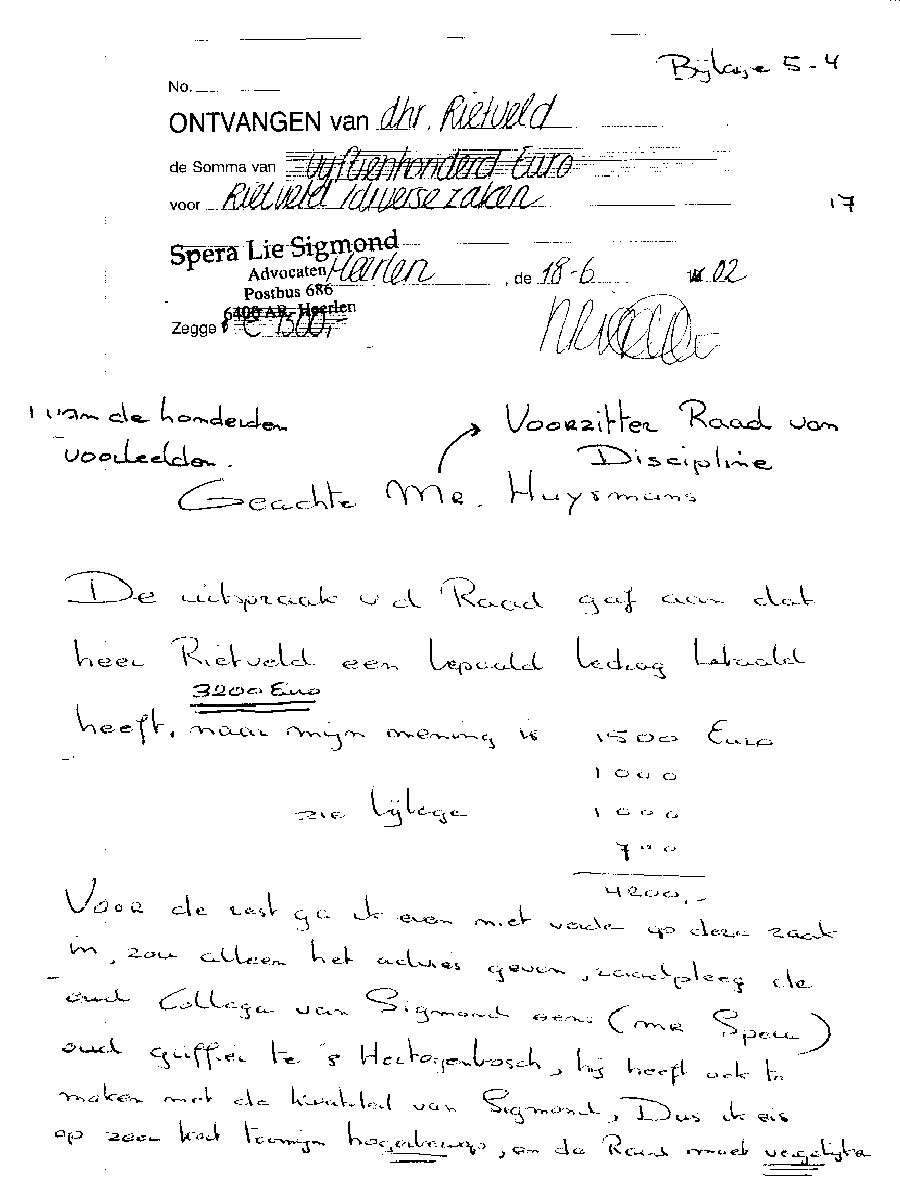 Bijlage 5-4
No.
ONTVANGEN van dhr. Rietveld
de Somma van vijftienhonderd Euro
voor Rietveld / diverse zaken
17
Spera Lie Sigmond
Advocaten Heerlen, de 18-6 02
Postbus 686
6400 AR Heerlen
Zegge € 1500,-
1 van de honderden
voorbeelden.
Voorzitter Raad van
Discipline
Geachte Mr. Huysmans
De uitspraak v d Raad gaf aan dat
heer Rietveld een bepaald bedrag betaald
3200 Euro
heeft, naar mijn mening is 1500 Euro
1000
zie bijlage 1000
700
4200,-
Voor de rest ga ik even niet verder op deze zaak
in, zou alleen het advies geven, raadpleeg de
oud Collega van Sigmond eens (mr Spera)
oud griffier te 's Hertogenbosch, hij heeft ook te
maken met de kwaliteit van Sigmond, Dus ik eis
op zeer kort termijn hogerberoep, en de Raad moet